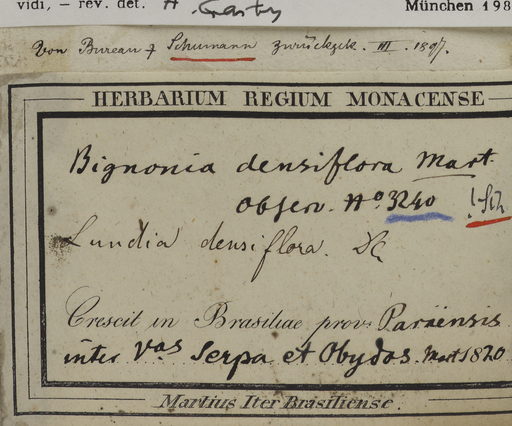 vidi, – rev. det. A. Gentry München 198
Von Bureau & Schumann zurückgek. III. 1897.
HERBARIUM REGIUM MONACENSE
Bignonia densiflora Mart.
Observ. No. 3240 ! Sch
Lundia densiflora. DC
Crescit in Brasiliae prov. Paraënsis
inter Vas Serpa et Obydos. Mart 1820
Martius Iter Brasiliense.